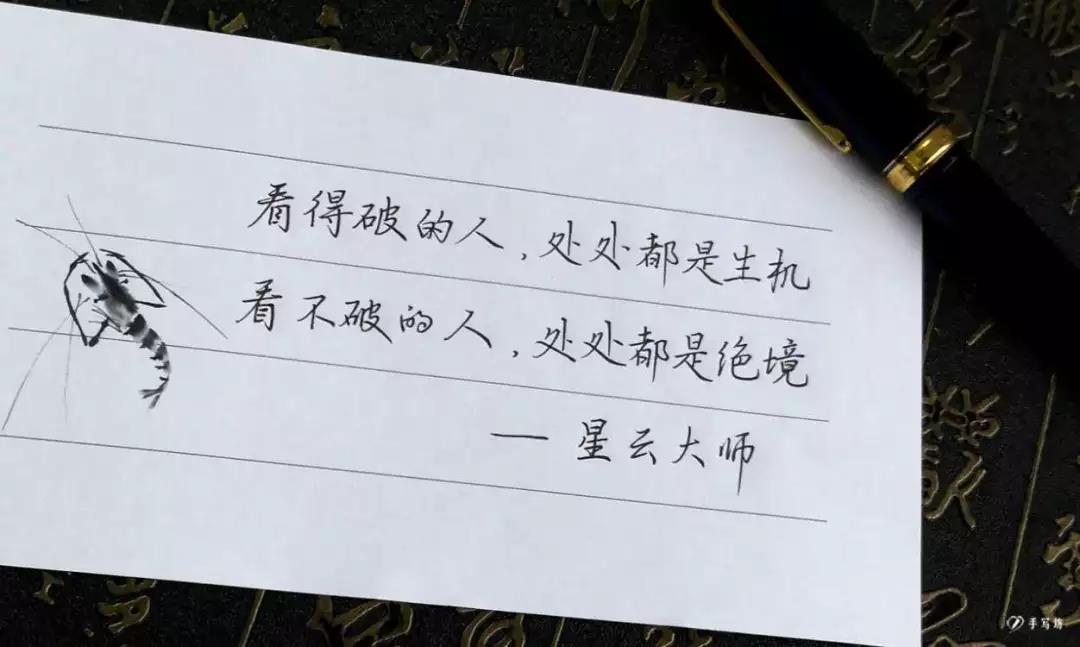 看得破的人,处处都是生机
看不破的人,处处都是绝境
— 星云大师
手写坊